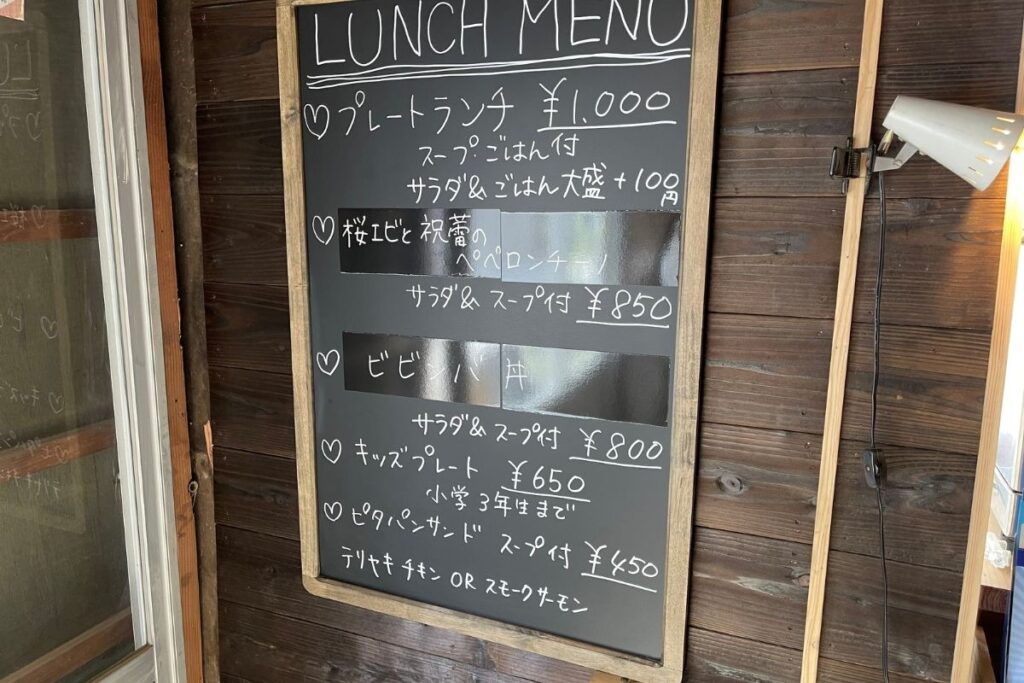 LUNCH MENU
♡プレートランチ ¥1,000
スープ・ごはん付
サラダ&ごはん大盛+100円
♡桜エビと祝蕾の
ペペロンチーノ
サラダ&スープ付 ¥850
♡ビビンバ丼
サラダ&スープ付 ¥800
♡キッズプレート ¥650
小学3年生まで
♡ピタパンサンド スープ付 ¥450
テリヤキチキン OR スモークサーモン